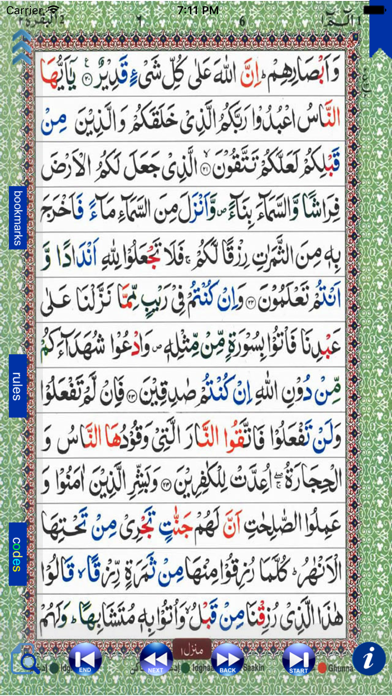 Carrier 7:11 PM
الٓمّٓ ١ 6 ١ البقرة ٢
وَاَبْصَارِهِمْ ؕ اِنَّ اللّٰهَ عَلٰى كُلِّ شَىْءٍ قَدِيْرٌ ۟ ﴿۲۰﴾ يٰۤاَيُّهَا
النَّاسُ اعْبُدُوْا رَبَّكُمُ الَّذِىْ خَلَقَكُمْ وَالَّذِيْنَ مِنْ
قَبْلِكُمْ لَعَلَّكُمْ تَتَّقُوْنَ ﴿۲۱﴾ الَّذِىْ جَعَلَ لَكُمُ الْاَرْضَ
فِرَاشًا وَّالسَّمَآءَ بِنَآءً ۪ وَّاَنْزَلَ مِنَ السَّمَآءِ مَآءً فَاَخْرَجَ
بِهٖ مِنَ الثَّمَرٰتِ رِزْقًا لَّكُمْ ۚ فَلَا تَجْعَلُوْا لِلّٰهِ اَنْدَادًا وَّ
اَنْتُمْ تَعْلَمُوْنَ ﴿۲۲﴾ وَاِنْ كُنْتُمْ فِىْ رَيْبٍ مِّمَّا نَزَّلْنَا عَلٰى
عَبْدِنَا فَاْتُوْا بِسُوْرَةٍ مِّنْ مِّثْلِهٖ ۪ وَادْعُوْا شُهَدَآءَكُمْ
مِّنْ دُوْنِ اللّٰهِ اِنْ كُنْتُمْ صٰدِقِيْنَ ﴿۲۳﴾ فَاِنْ لَّمْ تَفْعَلُوْا
وَلَنْ تَفْعَلُوْا فَاتَّقُوا النَّارَ الَّتِىْ وَقُوْدُهَا النَّاسُ وَ
الْحِجَارَةُ ۖۚ اُعِدَّتْ لِلْكٰفِرِيْنَ ﴿۲۴﴾ وَبَشِّرِ الَّذِيْنَ اٰمَنُوْا وَ
عَمِلُوا الصّٰلِحٰتِ اَنَّ لَهُمْ جَنّٰتٍ تَجْرِىْ مِنْ تَحْتِهَا
الْاَنْهٰرُ ؕ كُلَّمَا رُزِقُوْا مِنْهَا مِنْ ثَمَرَةٍ رِّزْقًا ۙ قَالُوْا
هٰذَا الَّذِىْ رُزِقْنَا مِنْ قَبْلُ ۙ وَاُتُوْا بِهٖ مُتَشَابِهًا ؕ وَلَهُمْ
bookmarks
rules
codes
منزل ١
END
NEXT
BACK
START